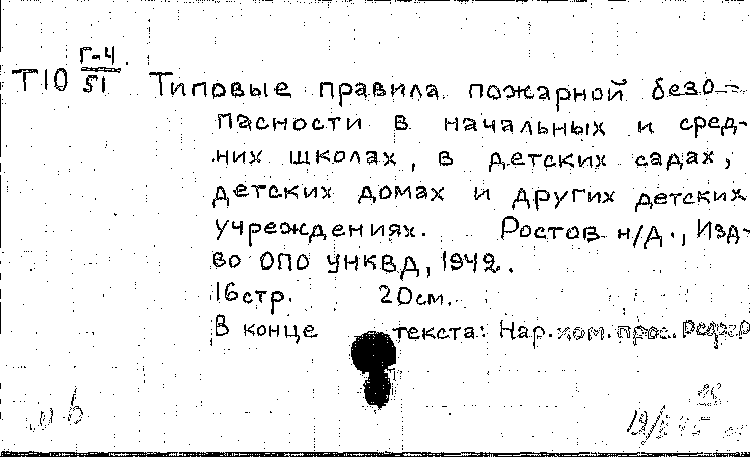 Т10 Г-4/51 Типовые правила пожарной безо-
пасности в начальных и сред-
них школах, в детских садах,
детских домах и других детских
учреждениях. Ростов н/Д., Изд-
во ОПО УНКВД, 1942.
16 стр. 20 см.
В конце текста: Нар.ком.прос.